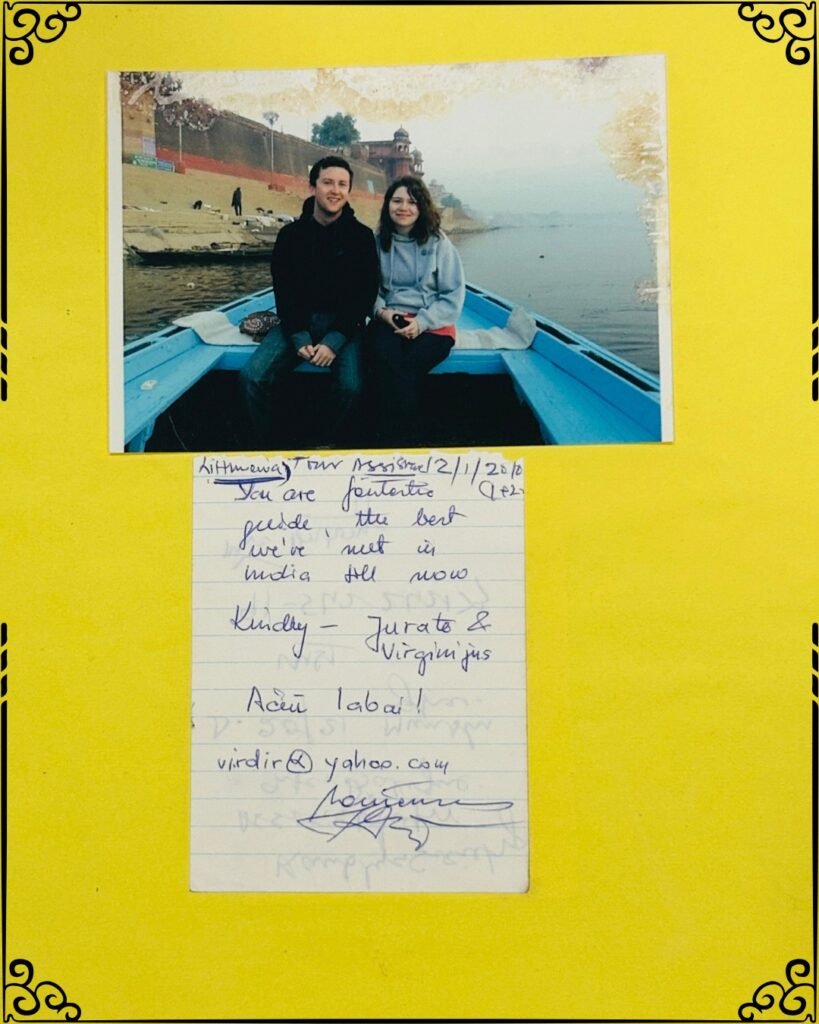 Tour Assistance 2/1/20
You are fantastic
guide, the best
we've met in
india till now
Kindly – Jurate &
Virginijus
Ačiū labai!
virdir@yahoo.com